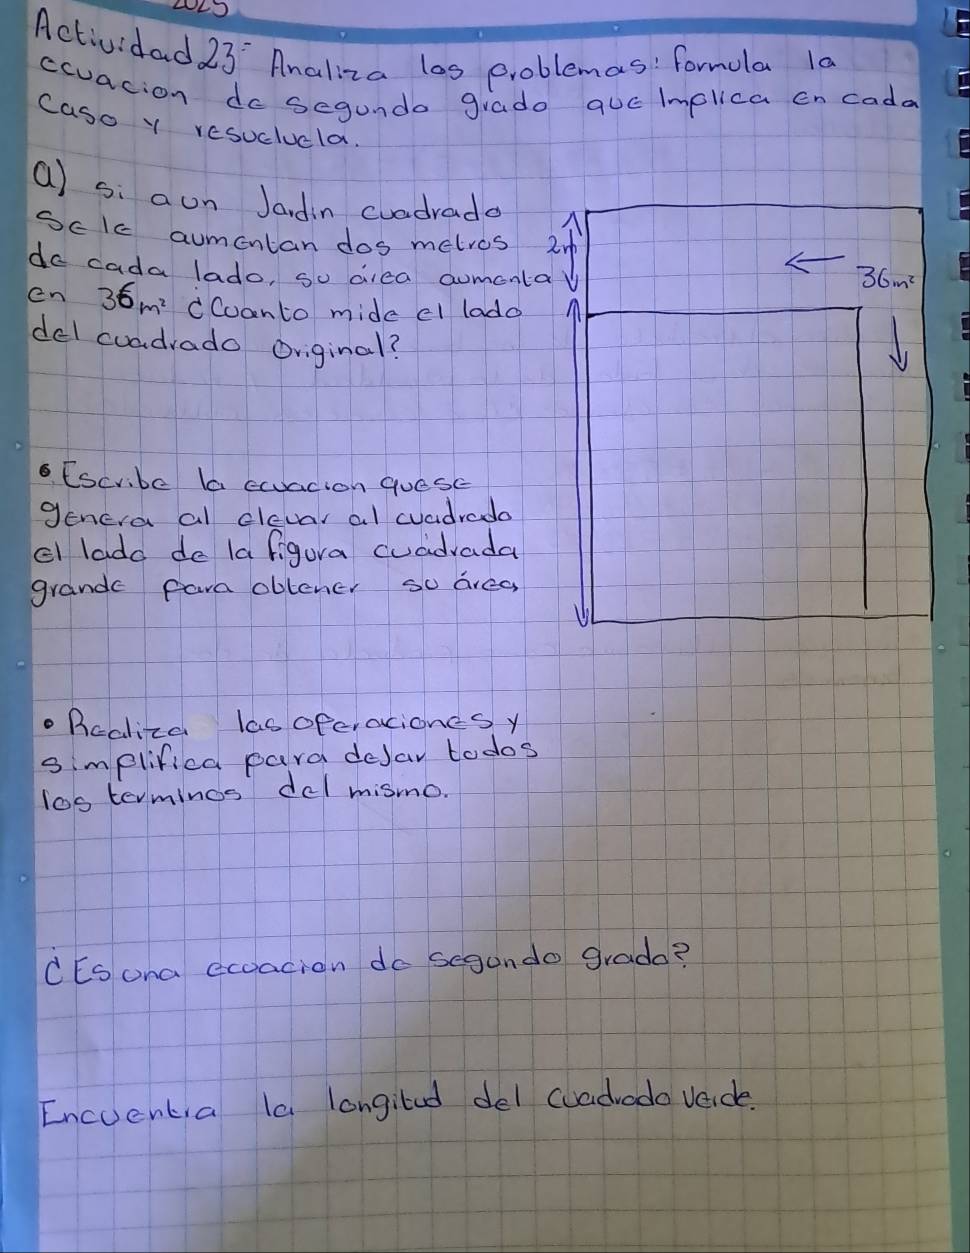 2025
Actividad 23- Analiza los problemas: formula la
ecuacion de segundo grado que Implica en cada
caso y resuelvela.
a) si aun Jardin cuadrado
Se le aumentan dos metros
de cada lado, su área aumenta
en 36m² ¿Cuanto mide el lado
del cuadrado Original?
2m
36m²
• Escribe la ecuacion quese
genera al elevar al cuadrado
el lado de la figura cuadrada
grande para obtener su área
• Realiza las operaciones y
simplifica para deJar todos
los terminos del mismo.
¿Es una ecuacion de segundo grado?
Encuentra la longitud del cuadrado verde.